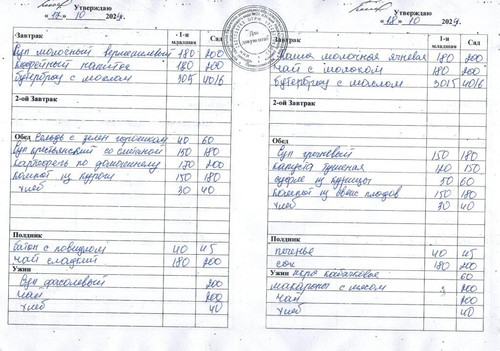 Утверждаю
«17» 10 2024.
Завтрак
1-я младшая
Сад
Суп молочный вермишелевый 180 200
Кофейный напиток 180 200
Бутерброд с маслом 30/5 40/6
2-ой Завтрак
Обед Сельдь с зелен горошком 40 60
Суп крестьянский со сметаной 150 180
Картофель по домашнему 170 200
Компот из кураги 150 180
Хлеб 30 40
Полдник
Батон с повидлом 40 45
Чай сладкий 180 200
Ужин
Суп фасолевый 200
Чай 200
Хлеб 40
Утверждаю
«18» 10 2024.
Для
Завтрак
1-я младшая
Сад
Каша молочная ячневая 180 200
Чай с молоком 180 200
Бутерброд с маслом 30/5 40/6
2-ой Завтрак
Обед
Суп гречневый 150 180
Капуста тушеная 120 150
Суфле из курицы 50 60
Компот из свеж плодов 150 180
Хлеб 30 40
Полдник
Печенье 40 45
Сок 180 200
Ужин Икра кабачковая 60
Макароны с мясом 200
Чай 200
Хлеб 40